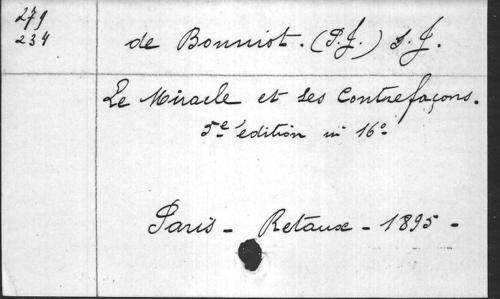 279
234
de Bonniot. (P.J.) S.J.
Le Miracle et ses Contrefaçons.
5e édition in 16°
Paris - Retaux - 1895 -